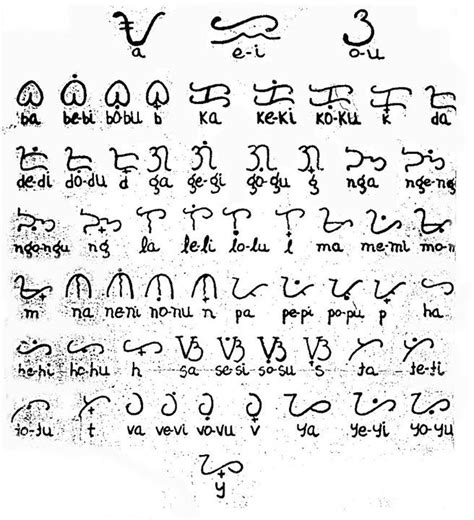 ᜀ ᜁ ᜂ
a e-i o-u
ᜊ ᜊᜒ ᜊᜓ ᜊ᜔ ᜃ ᜃᜒ ᜃᜓ ᜃ᜔ ᜇ
ba be-bi bo-bu b ka ke-ki ko-ku k da
ᜇᜒ ᜇᜓ ᜇ᜔ ᜄ ᜄᜒ ᜄᜓ ᜄ᜔ ᜅ ᜅᜒ
de-di do-du d ga ge-gi go-gu g nga nge-ng
ᜅᜓ ᜅ᜔ ᜎ ᜎᜒ ᜎᜓ ᜎ᜔ ᜋ ᜋᜒ ᜋᜓ
ngo-ngu ng la le-li lo-lu l ma me-mi mo-
ᜋ᜔ ᜈ ᜈᜒ ᜈᜓ ᜈ᜔ ᜉ ᜉᜒ ᜉᜓ ᜉ᜔ ᜑ
m na ne-ni no-nu n pa pe-pi po-pu p ha
ᜑᜒ ᜑᜓ ᜑ᜔ ᜐ ᜐᜒ ᜐᜓ ᜐ᜔ ᜆ ᜆᜒ
he-hi ho-hu h sa se-si so-su s ta te-ti
ᜆᜓ ᜆ᜔ ᜏ ᜏᜒ ᜏᜓ ᜏ᜔ ᜌ ᜌᜒ ᜌᜓ
to-tu t va ve-vi vo-vu v ya ye-yi yo-yu
ᜌ᜔
y